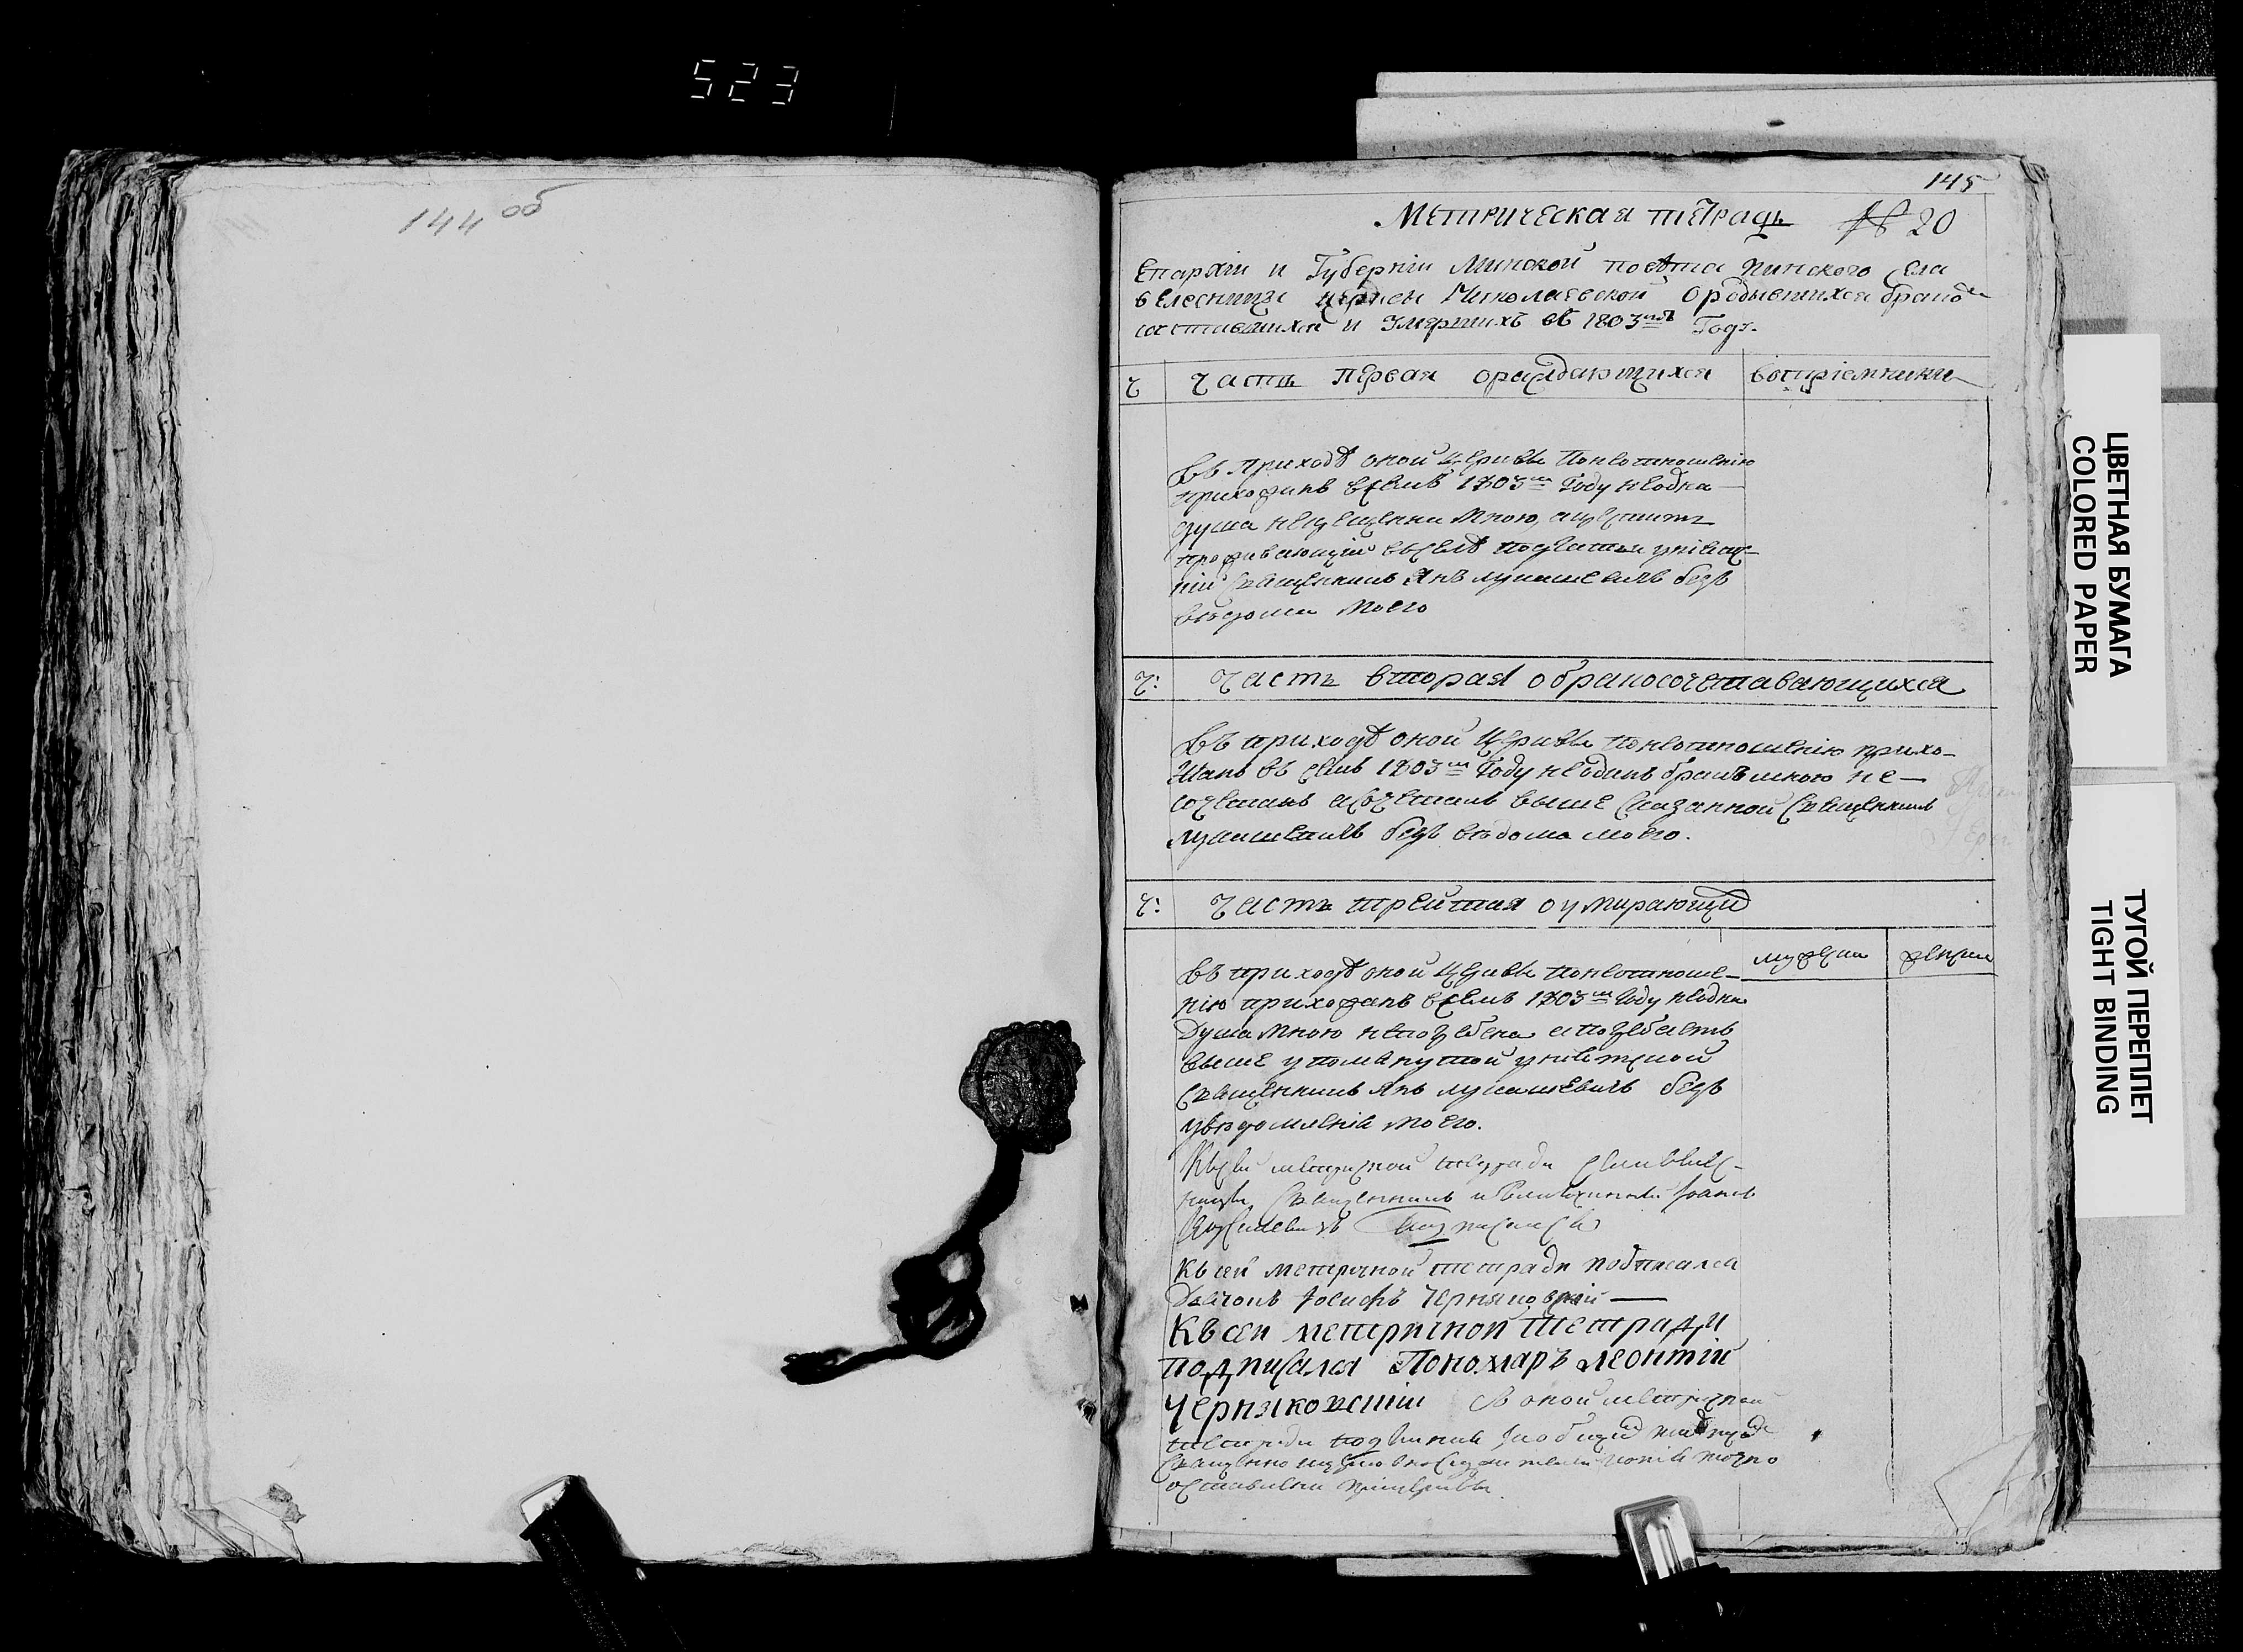 523
144 об
145
Метрическая тетрадь № 20
Епархіи и Губерніи Минской повѣта Пинского села
Велесницы церкви Николаевской о родывшихся бракосо
сочетавшихся и Умершихъ въ 1803мъ Годѣ.
Ч Часть первая о раждающихся воспріемники
въ приходѣ оной Церкви По неотношенію
прихожанъ всемъ 1803м Году неодна
душа не крещенна Мною, а креститъ
проживающій въ селѣ
Священникъ Янъ Лукашевичъ безъ
вѣдома моего
Ч: Часть вторая о бракосочетавающихся
въ приходѣ оной Церкви по неотношенію прихо-
жанъ въ семъ 1803м Году неоданъ бракъ мною не-
сочетанъ а сочеталъ выше сказанной Священникъ
Лукашевичъ безъ вѣдома моего.
Ч: Часть трейтая о умирающи
мужска женска
въ приходѣ оной Церкви по неотноше-
нію прихожанъ всемъ 1803м Году неодна
Душа Мною непогребена а погребаетъ
выше упомянутой уніятской
Священникъ Янъ Лукашевичъ безъ
увѣдомленія моего.
Къ сей метрической тетради села Велес-
ницы Священникъ Іоанъ
подписался
Къ сей метричной тетради подписался
Дьячокъ Іосифъ Черняковскій
Къ сей метричной тетради
подписался Пономаръ Леонтій
Черняковскій В оной метричной
тетради
копія точно
оставлена при церкви.
ЦВЕТНАЯ БУМАГА
COLORED PAPER
ТУГОЙ ПЕРЕПЛЕТ
TIGHT BINDING